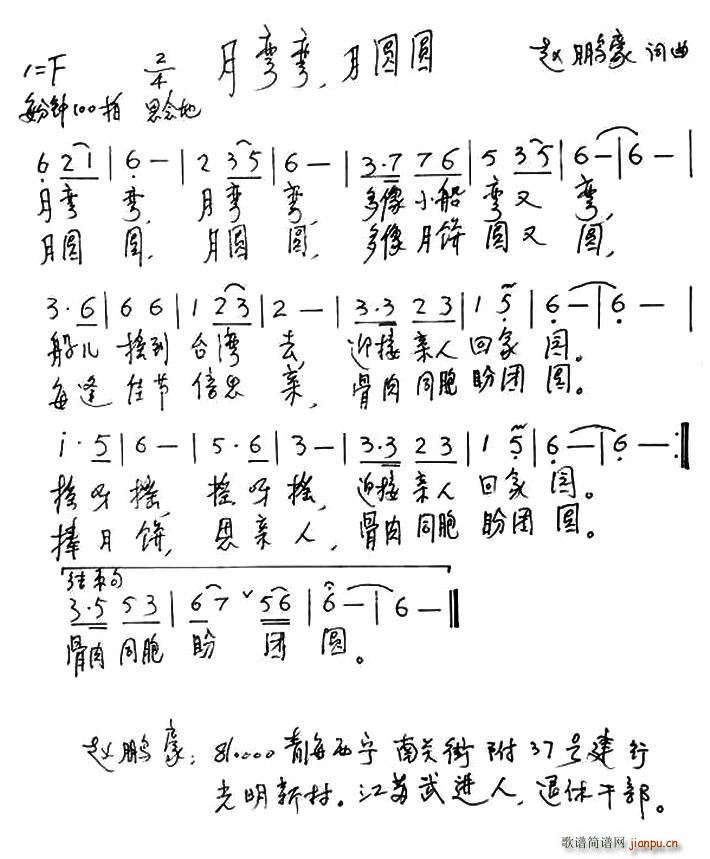 1=F 2/4 月弯弯，月圆圆 赵鹏豪 词曲
每分钟100拍 思念地
6 2 1 | 6 — | 2 3 5 | 6 — | 3·7 7 6 | 5 3 5 | 6 — | 6 — |
月弯 弯， 月弯 弯， 多像小船 弯又 弯，
月圆 圆， 月圆 圆， 多像月饼 圆又 圆，
3·6 | 6 6 | 1 2 3 | 2 — | 3·3 2 3 | 1 5 | 6 — | 6 — |
船儿 摇到 台湾 去， 迎接亲人 回家 园。
每逢 佳节 倍思 亲， 骨肉同胞 盼团 圆。
i·5 | 6 — | 5·6 | 3 — | 3·3 2 3 | 1 5 | 6 — | 6 — :||
摇呀 摇， 摇呀 摇， 迎接亲人 回家 园。
捧月 饼， 思亲 人， 骨肉同胞 盼团 圆。
结束句
3·5 5 3 | 6 7 ˇ 5 6 | 6 — | 6 — ||
骨肉同胞 盼 团 圆。
赵鹏豪：810000 青海西宁 南关街 附37号建行
光明新村。江苏武进人，退休干部。
歌谱简谱网 jianpu.cn